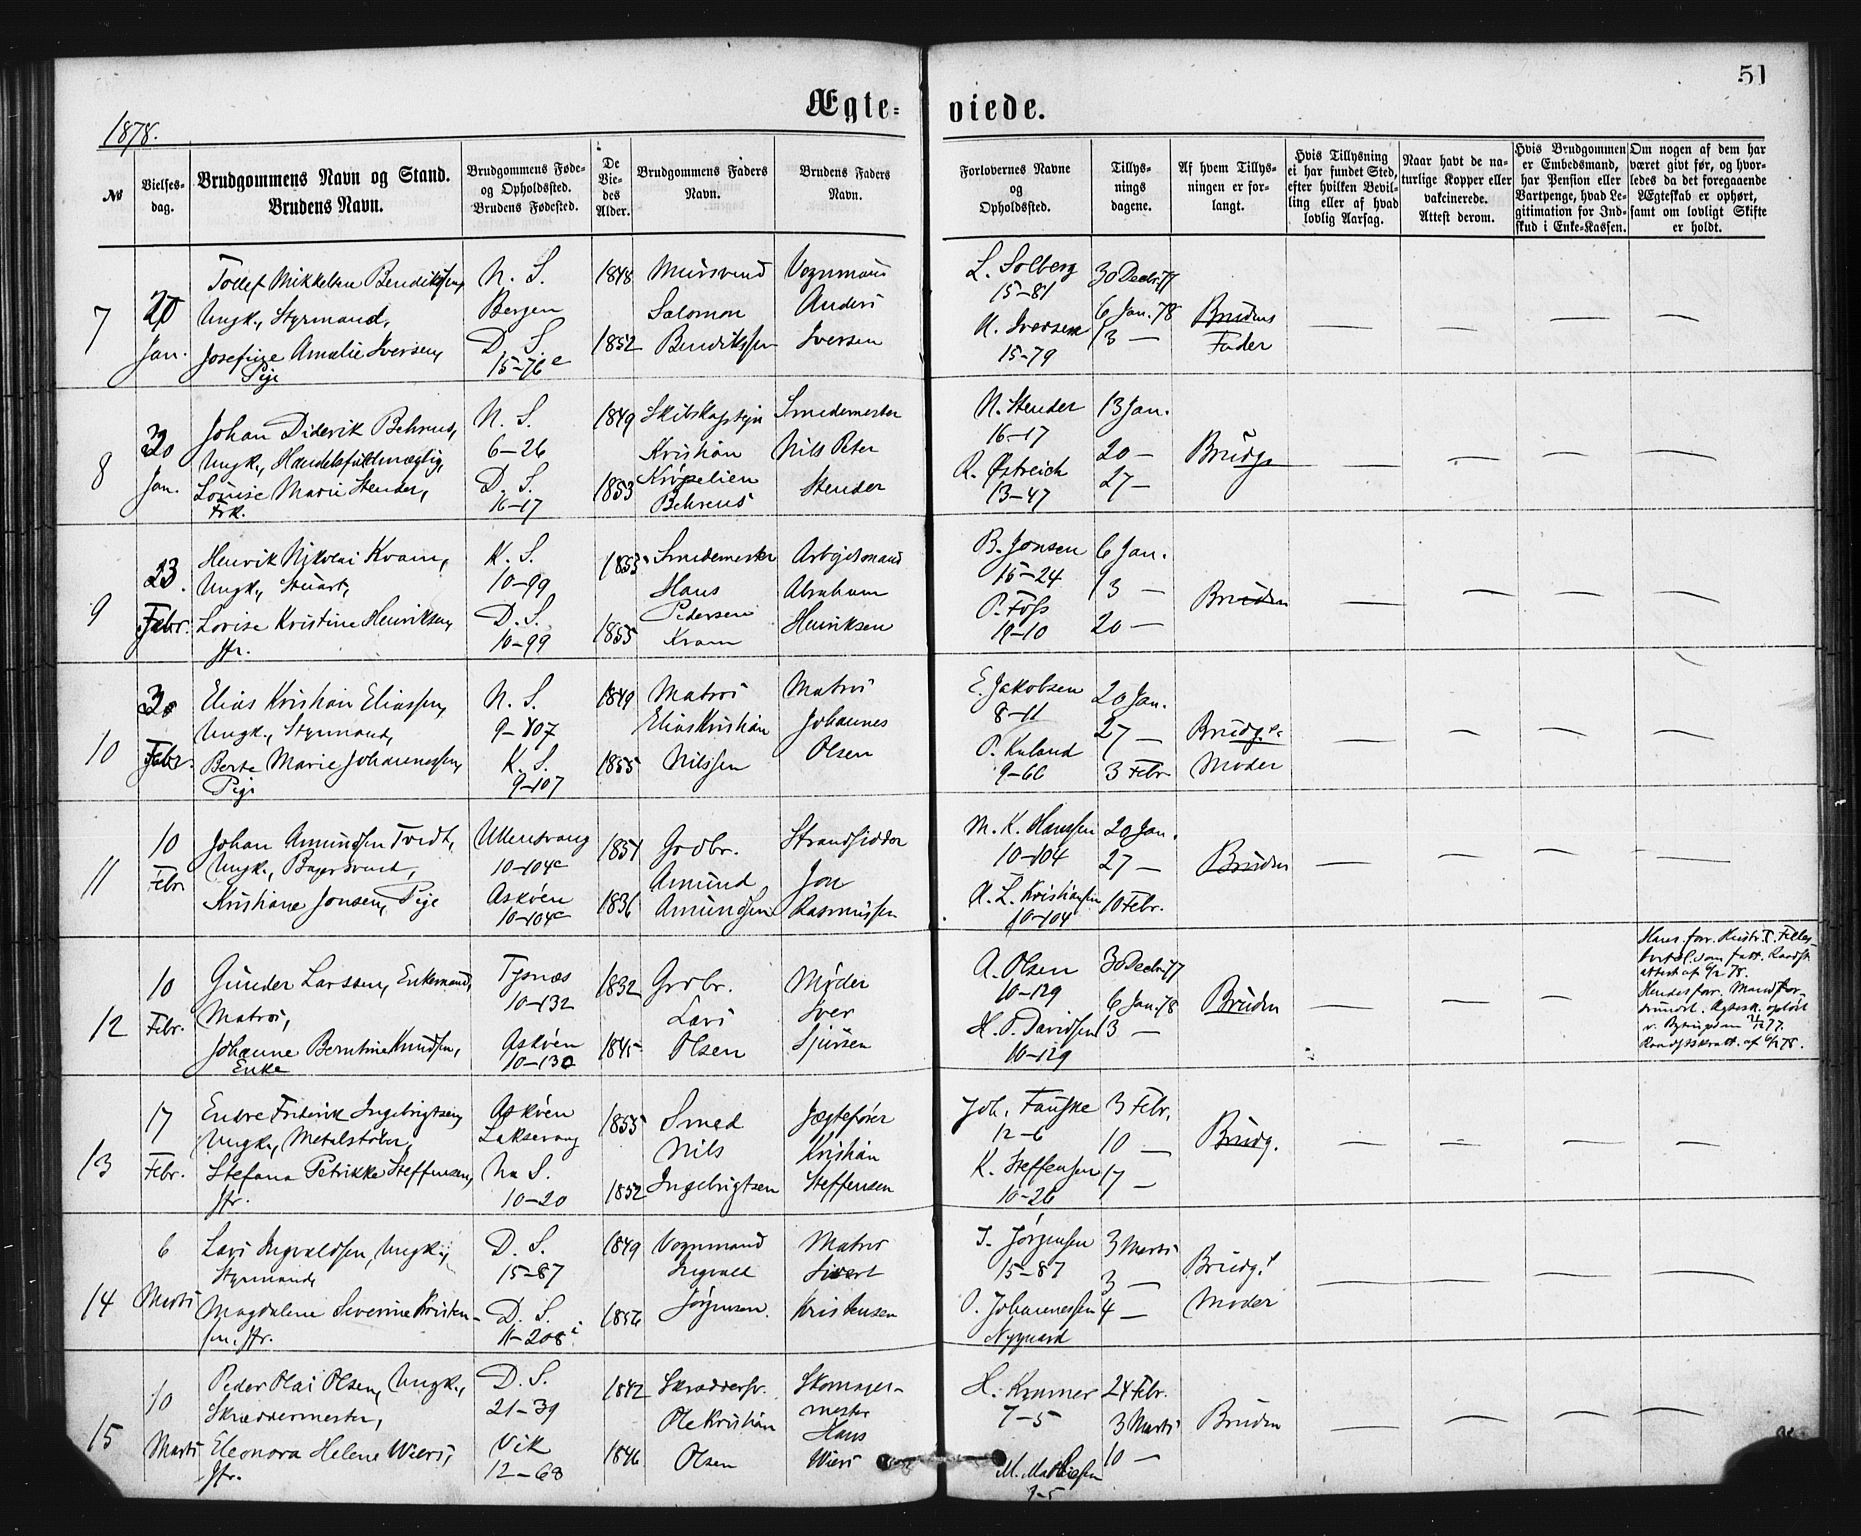 51
Ægte-
viede.
1878.
No
Vielses-
dag.
Brudgommens Navn og Stand.
Brudens Navn.
Brudgommens Føde-
og Opholdssted.
Brudens Fødested.
De
Vie-
des
Alder.
Brudgommens Faders
Navn.
Brudens Faders
Navn.
Forlovernes Navne
og
Opholdssted.
Tillys-
nings
dagene.
Af hvem Tillys-
ningen er for-
langt.
Hvis Tillysning
ei har fundet Sted,
efter hvilken Bevil-
ling eller af hvad
lovlig Aarsag.
Naar havt de na-
turlige Kopper eller
vakcinerede.
Attest derom.
Hvis Brudgommen
er Embedsmand,
har Pension eller
Vartpenge, hvad Le-
gitimation for Ind-
skud i Enke-Kassen.
Om nogen af dem har
været givt før, og hvor-
ledes da det foregaaende
Ægteskab er ophørt,
samt om lovligt Skifte
er holdt.
7
20
Jan.
Tollef Mikkelsen Bendiktsen,
Ungk., Styrmand,
Josefine Amalie Iversen,
Pige
N. S.
Bergen
D. S.
15-76 e
1848
1852
Mursvend
Salomon
Bendiktsen
Vognmand
Anders
Iversen
L. Solberg
15-81
N. Iversen
15-79
30 Decbr. 77
6 Jan. 78
13 —
Brudens
Fader
8
20
Jan.
Johan Diderik Behrens,
Ungk., Handelsfuldmægtig,
Louise Marie Stender,
Frk.
N. S.
6-26
D. S.
16-17
1849
1853
Skibskaptejn
Kristian
Krøpelien
Behrens
Smedemester
Nils Peter
Stender
N. Stender
16-17
R. Østreich
13-47
13 Jan.
20 —
27 —
Brudg.
9
23.
Febr.
Henrik Nikolai Kvam,
Ungk., Stuart,
Lovise Kristine Henriksen,
Jfr.
K. S.
10-99
D. S.
10-99
1853
1855
Smedemester
Hans
Pedersen
Kvam
Arbejdsmand
Abraham
Henriksen
B. Jonsen
15-24
P. Foss
19-10
6 Jan.
13 —
20 —
Bruden
10
3
Febr.
Elias Kristian Eliassen,
Ungk., Styrmand,
Berte Marie Johannessen,
Pige
N. S.
9-107
K. S.
9-107
1849
1855
Matros
Elias Kristian
Nilssen
Matros
Johannes
Olsen
E. Jakobsen
8-11
P. Kuland
9-60
20 Jan.
27 —
3 Febr.
Brudg.s
Moder
11
10
Febr.
Johan Amundsen Tvedt,
Ungk., Bagersvend,
Kristiane Jonsen, Pige
Ullensvang
10-104c
Askøen
10-104c
1851
1836
Grdbr.
Amund
Amundsen
Strandsidder
Jon
Rasmussen
M. K. Hanssen
10-104
N. L. Kristiansen
10-104
20 Jan.
27 —
10 Febr.
Bruden
12
10
Febr.
Gunder Larssen, Enkemand,
Matros,
Johanne Berntine Knudsen,
Enke
Tysnæs
10-132
Askøen
10-130
1832
1845
Grdbr.
Lars
Olsen
Møder
Iver
Sjursen
A. Olsen
10-129
H. P. Davidsen
10-129
30 Decbr. 77
6 Jan. 78
13 —
Bruden
13
17
Febr.
Endre Frederik Ingebrigtsen,
Ungk., Metalstøber,
Stefana Petrikke Steffensen,
Jfr.
Askøen
Laksevaag
N. S.
10-20
1855
1852
Smed
Nils
Ingebrigtsen
Jægtefører
Kristian
Steffensen
Joh. Fauske
12-6
K. Steffensen
10-26
3 Febr.
10 —
17 —
Brudg.
14
6
Marts
Lars Ingvaldsen, Ungk.,
Styrmand,
Magdalene Severine Kristen-
sen, Jfr.
D. S.
15-87
D. S.
11-208 i
1849
1856
Vognmand
Ingvald
Jørgensen.
Matros
Sivert
Kristensen
I. Jørgensen
15-87
P. Johannessen
Nygaard
3 Marts
3 —
4 —
Brudg.s
Moder
15
10
Marts
Peder Olai Olsen, Ungk.,
Skræddermester,
Eleonora Helene Wiers,
Jfr.
D. S.
21-39
Vik
12-68
1842
1846
Skræddersv.
Ole Kristian
Olsen
Skomager-
mester
Hans
Wiers
H. Kramer
7-5
M. Mathiesen
7-5
24 Febr.
3 Marts
10 —
Bruden